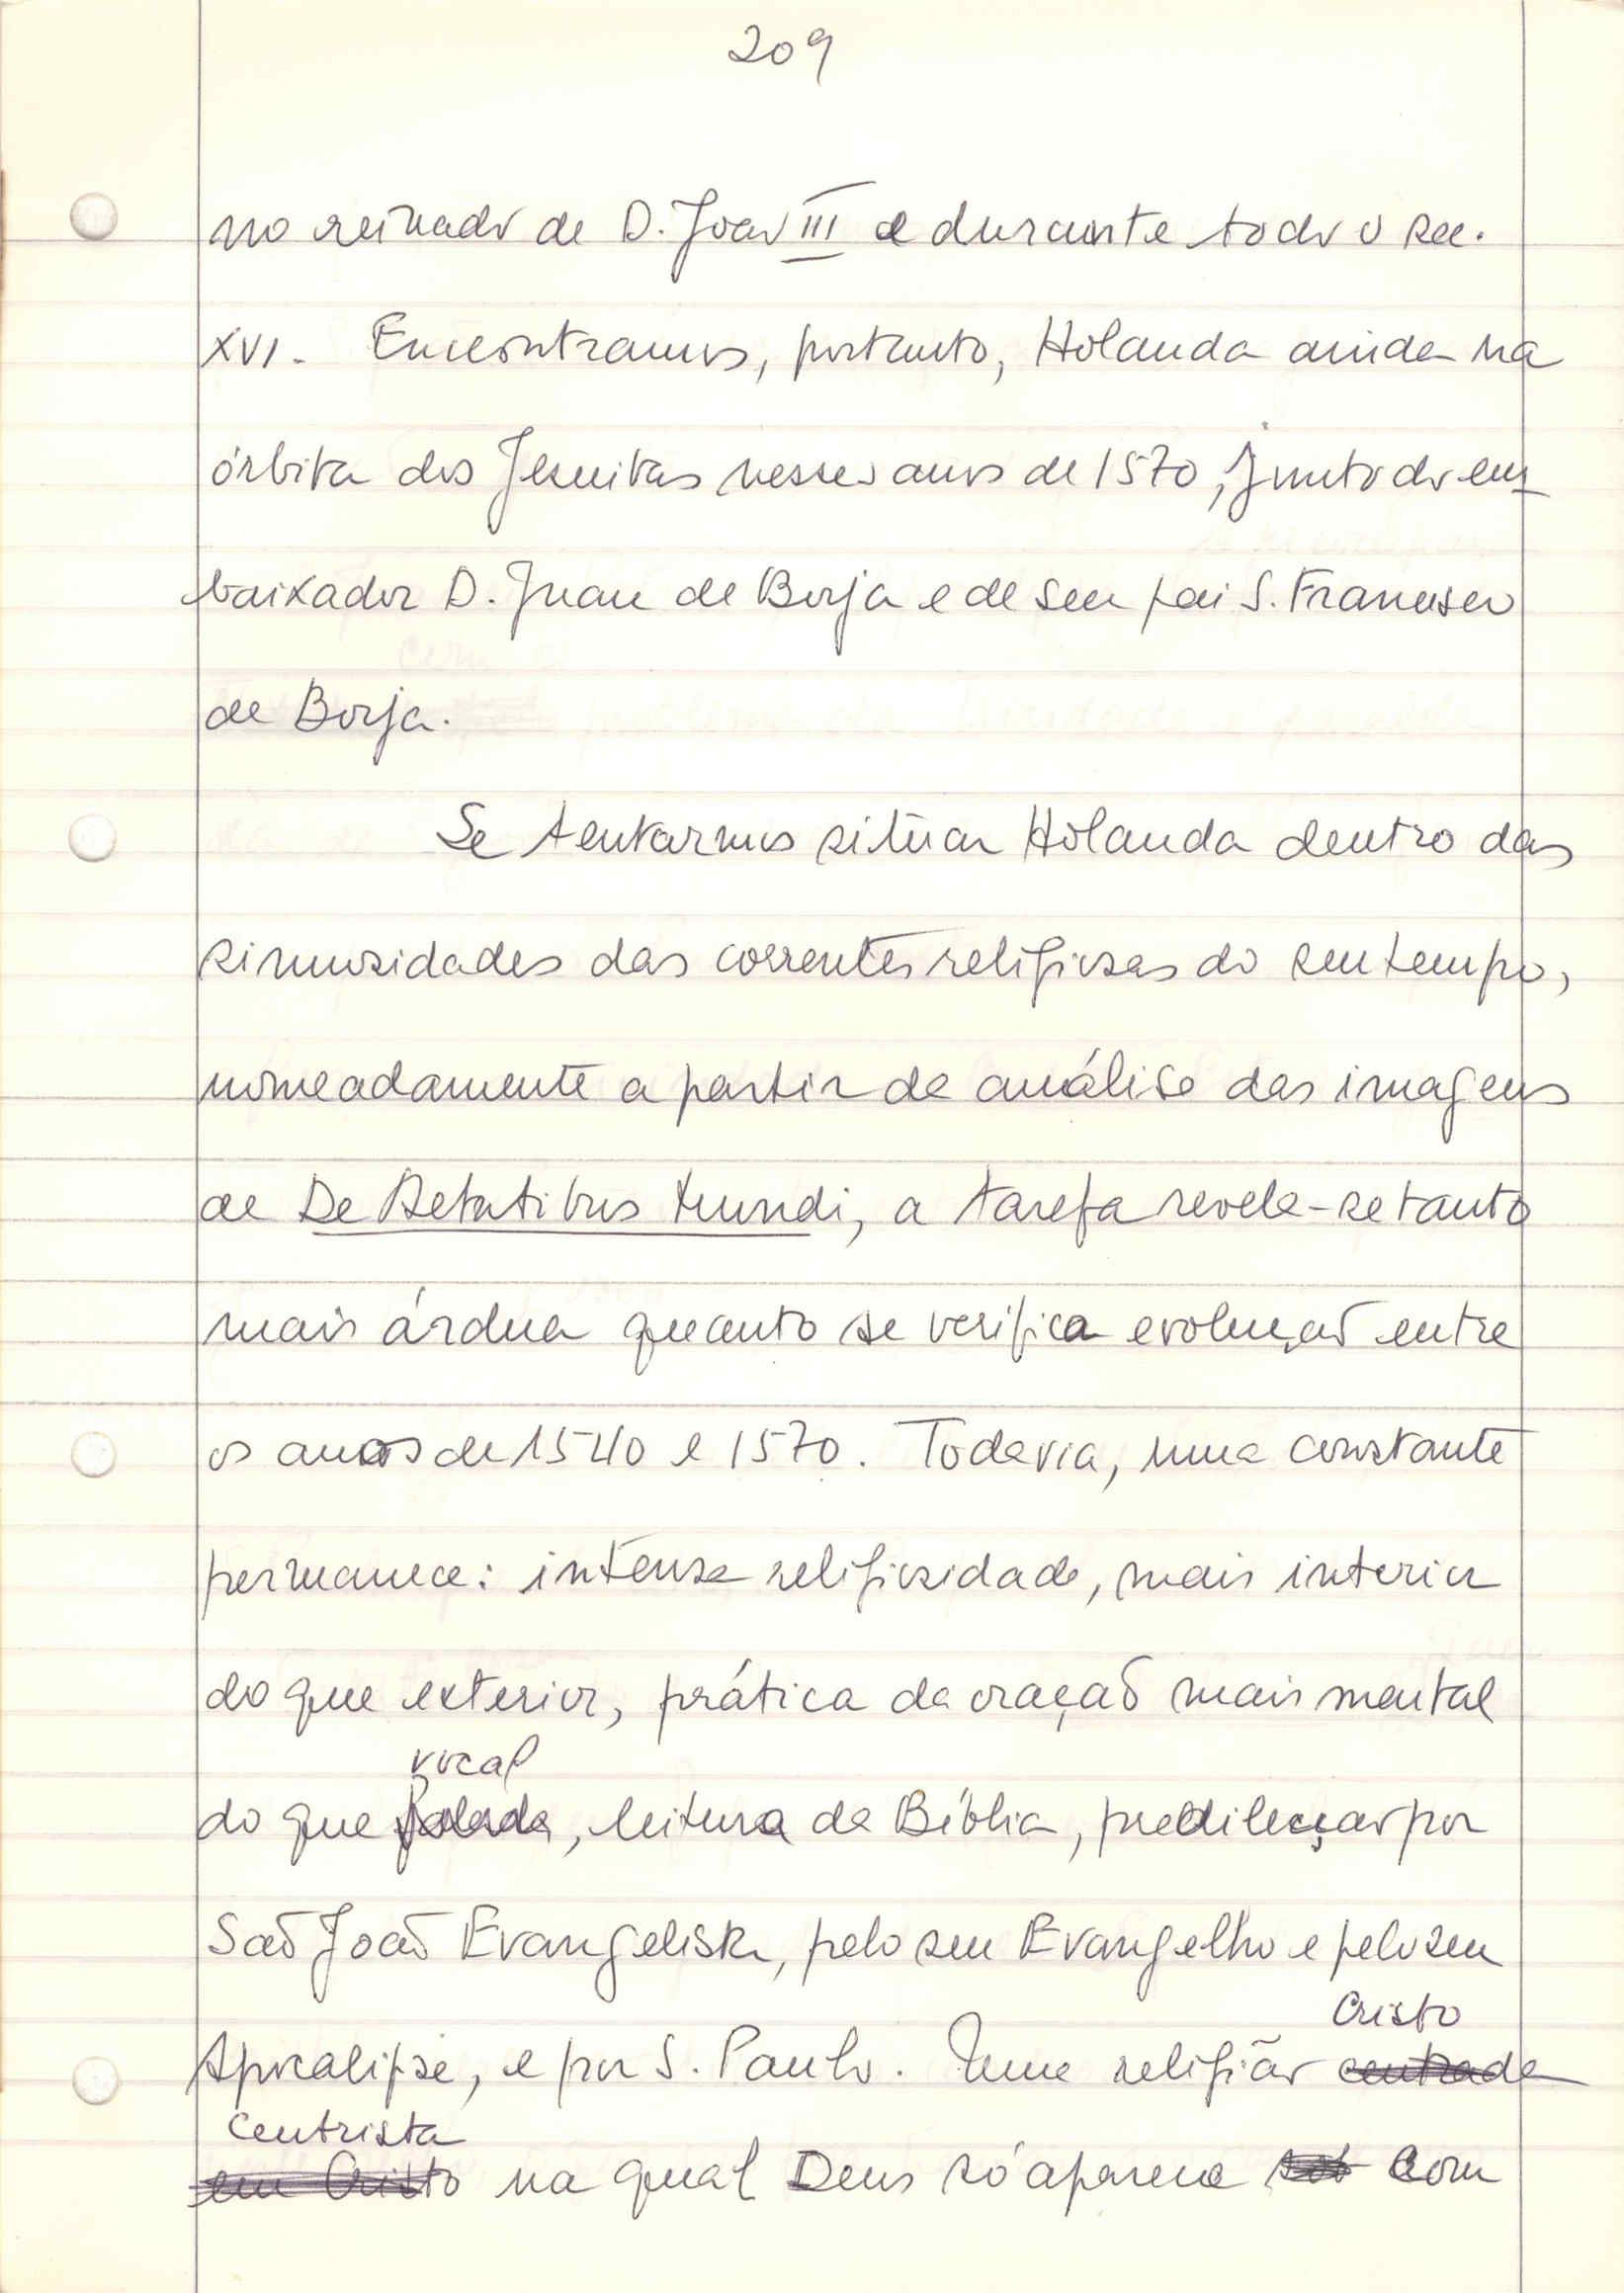 209
no reinado de D. João III e durante todo o sec.
XVI. Encontramos, portanto, Holanda ainda na
órbita dos Jesuitas nesses anos de 1570, junto do em
baixador D. Juan de Borja e de seu pai S. Francisco
de Borja.
Se tentarmos situar Holanda dentro das
sinuosidades das correntes religiosas do seu tempo,
nomeadamente a partir da análise das imagens
de De Aetatibus Mundi, a tarefa revela-se tanto
mais árdua quanto se verifica evolução entre
os anos de 1540 e 1570. Todavia, uma constante
permanece: intensa religiosidade, mais interior
do que exterior, prática da oração mais mental
vocal
do que falada, leitura da Bíblia, predilecção por
São João Evangelista, pelo seu Evangelho e pelo seu
Cristo
Apocalipse, e por S. Paulo. Uma religião centrada
centrista
em Cristo na qual Deus só aparece com